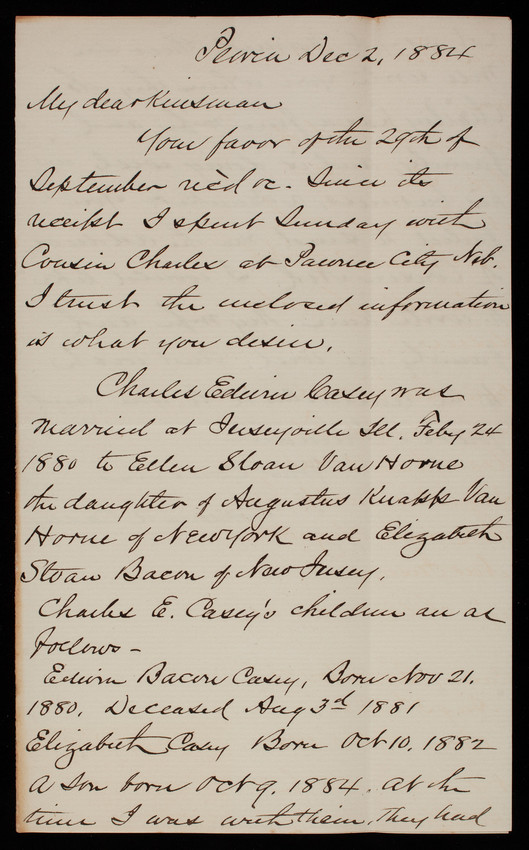 Dec 2, 1884
My dear Kinsman
Your favor of the 29th of
September rec'd &c. Since its
receipt I spent Sunday with
Cousin Charles at Pawnee City Neb.
I trust the inclosed information
is what you desire.
Charles Edwin Casey was
married at Jerseyville Ill. Feby 24
1880 to Ellen Sloan Van Horne
the daughter of Augustus Knapp Van
Horne of New York and Elizabeth
Sloan Bacon of New Jersey.
Charles E. Casey's children are as
follows -
Edwin Bacon Casey, Born Nov 21.
1880. Deceased Aug 3rd 1881
Elizabeth Casey Born Oct 10. 1882
A son born Oct 9. 1884. at the
time I was with them, they had